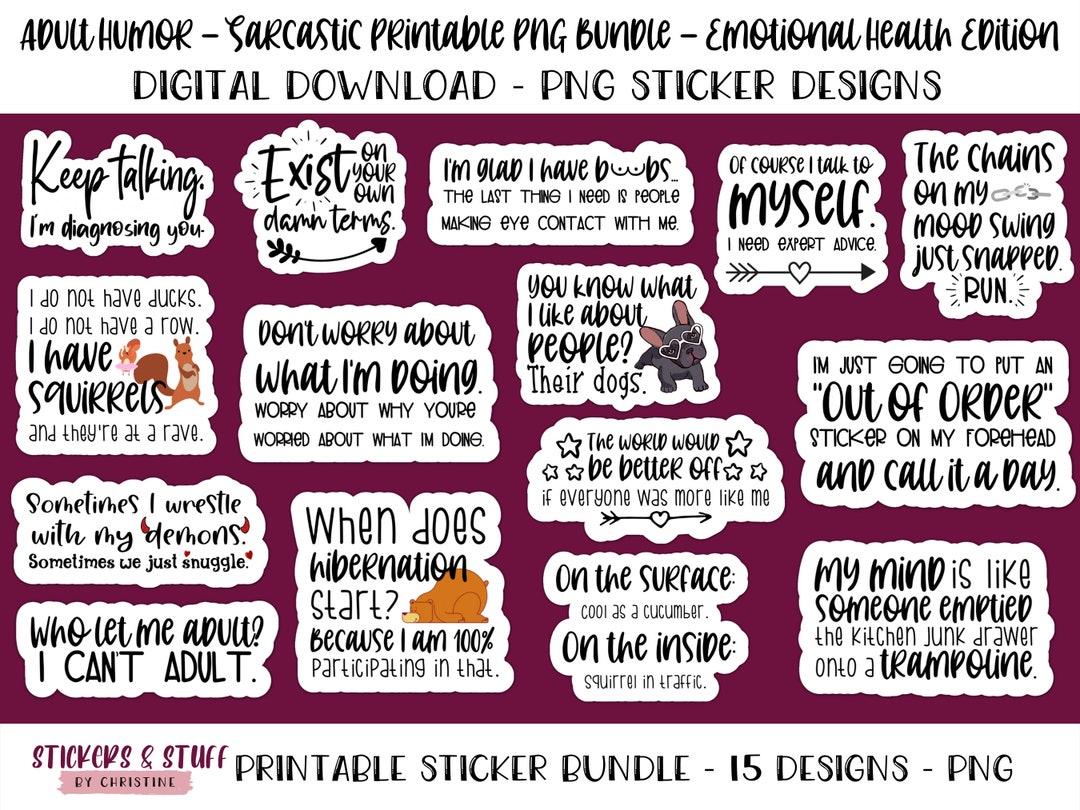 Adult Humor – Sarcastic Printable PNG Bundle – Emotional Health Edition
DIGITAL DOWNLOAD - PNG STICKER DESIGNS
Keep talking.
I'm diagnosing you.
Exist on
your
own
damn terms.
I'm glad I have boobs...
THE LAST THING I NEED IS PEOPLE
MAKING EYE CONTACT WITH ME.
Of course I talk to
myself.
I NEED EXPERT ADVICE.
The chains
on my
mood swing
just snapped.
RUN.
I do not have ducks.
I do not have a row.
I have
squirrels
and they're at a rave.
Don't worry about
what I'm doing.
WORRY ABOUT WHY YOU'RE
WORRIED ABOUT WHAT I'M DOING.
You know what
I like about
people?
Their dogs.
I'M JUST GOING TO PUT AN
"Out of Order"
STICKER ON MY FOREHEAD
and call it a day.
The world would
be better off
if everyone was more like me
Sometimes I wrestle
with my demons.
Sometimes we just snuggle.
When does
hibernation
start?
Because I am 100%
participating in that.
On the surface:
cool as a cucumber.
On the inside:
squirrel in traffic.
My mind is like
someone emptied
the kitchen junk drawer
onto a trampoline.
Who let me adult?
I CAN'T ADULT.
STICKERS & STUFF
BY CHRISTINE
PRINTABLE STICKER BUNDLE - 15 DESIGNS - PNG